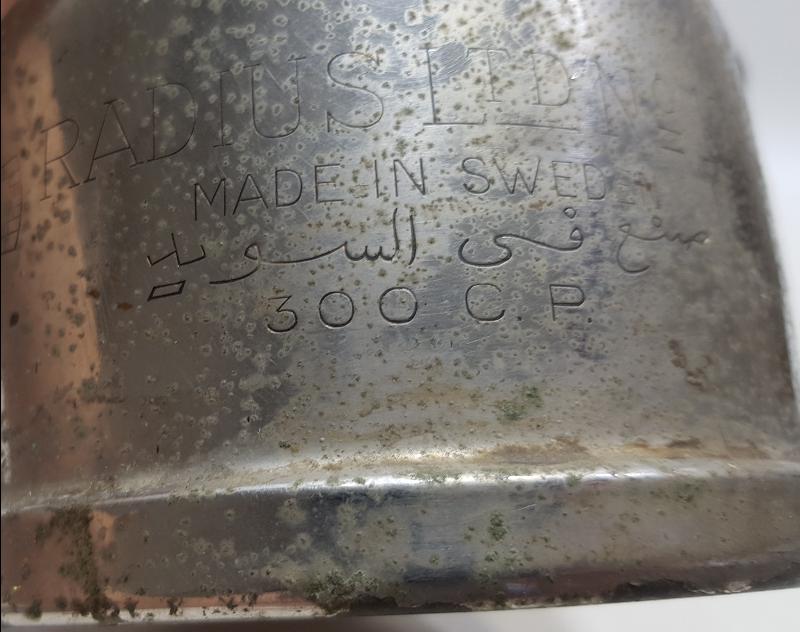 RADIUS LTD No
MADE IN SWEDE
صنع فى السويد
300 C.P.